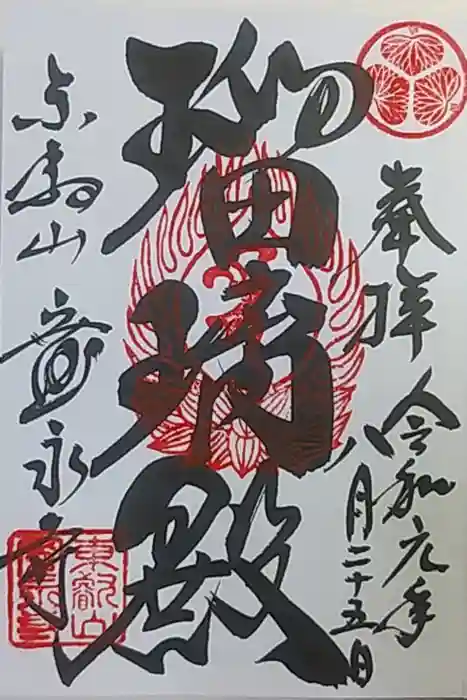 奉拝
令和元年
八月二十五日
瑠璃殿
東叡山
寛永寺
東叡山